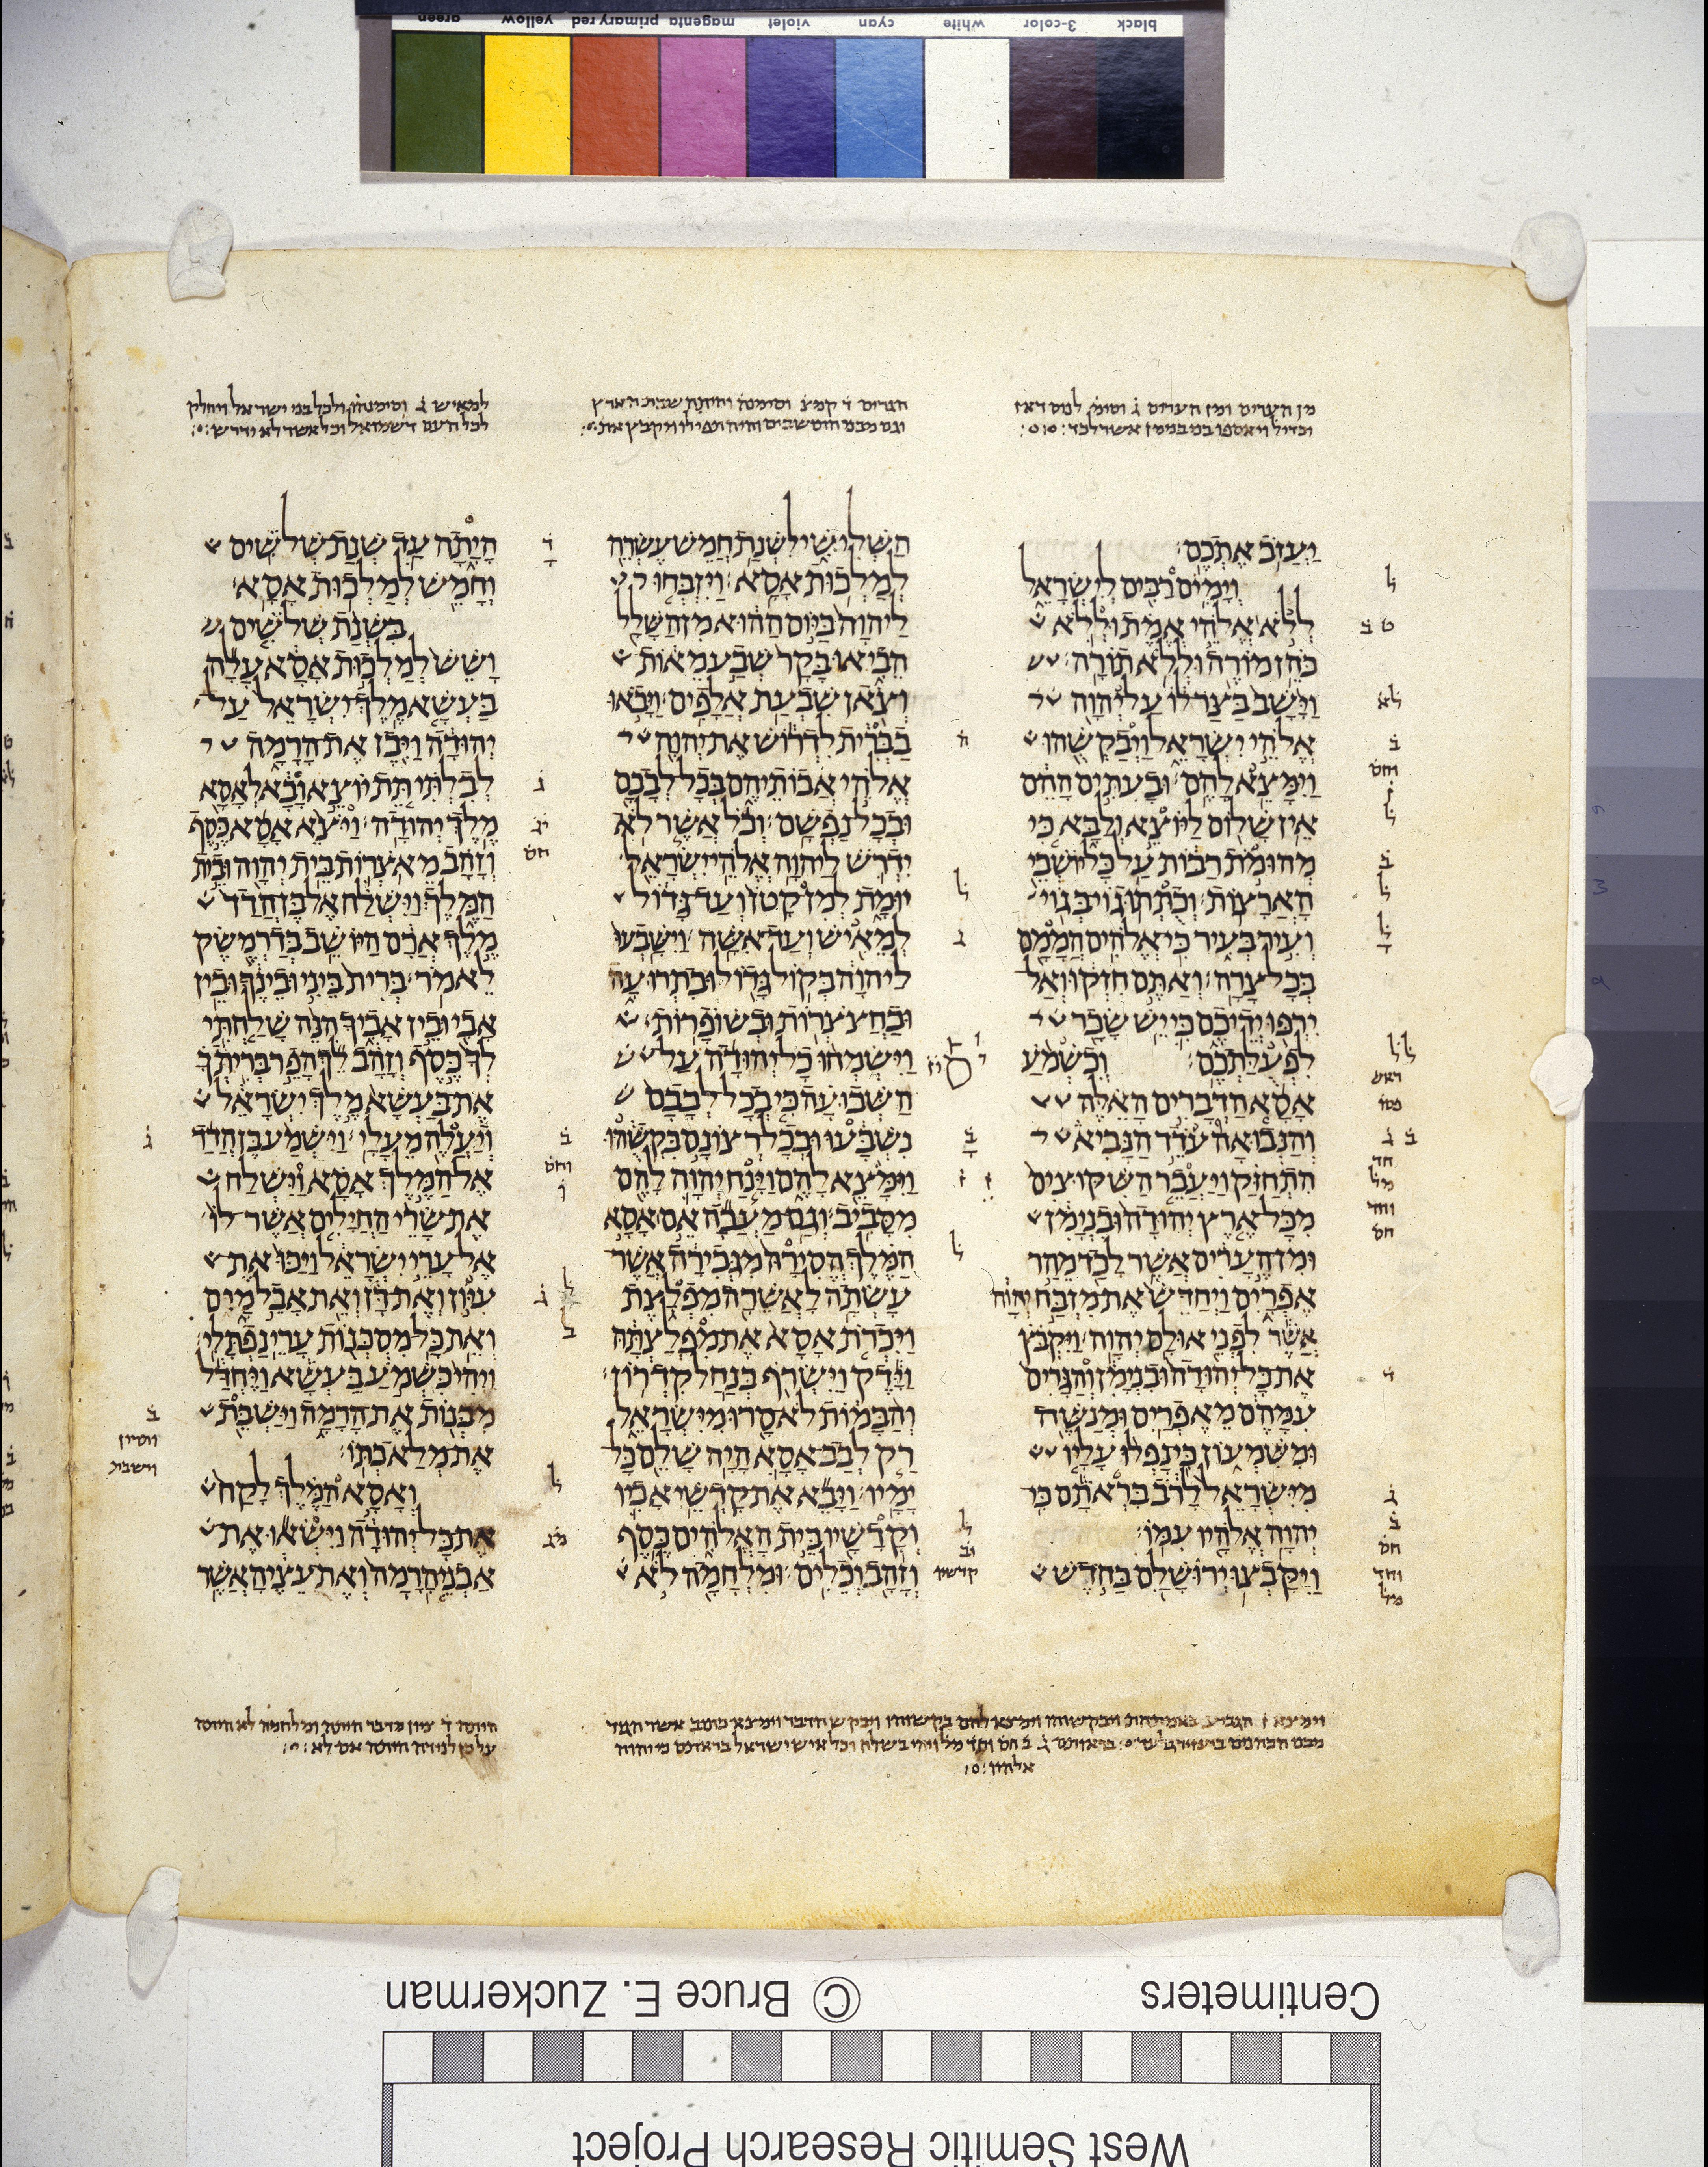 black 3-color white cyan violet magenta primary red yellow green
וַיַּעֲזֹב אֶתְכֶם׃
וְיָמִים רַבִּים לְיִשְׂרָאֵל
לְלֹא אֱלֹהֵי אֱמֶת וּלְלֹא
כֹּהֵן מוֹרֶה וּלְלֹא תוֹרָה׃
וַיָּשָׁב בַּצַּר לוֹ עַל יְהוָה
אֱלֹהֵי יִשְׂרָאֵל וַיְבַקְשֻׁהוּ
וַיִּמָּצֵא לָהֶם׃ וּבָעִתִּים הָהֵם
אֵין שָׁלוֹם לַיּוֹצֵא וְלַבָּא כִּי
מְהוּמֹת רַבּוֹת עַל כָּל יוֹשְׁבֵי
הָאֲרָצוֹת׃ וְכֻתְּתוּ גוֹי בְּגוֹי
וְעִיר בְּעִיר כִּי אֱלֹהִים הֲמָמָם
בְּכָל צָרָה׃ וְאַתֶּם חִזְקוּ וְאַל
יִרְפּוּ יְדֵיכֶם כִּי יֵשׁ שָׂכָר
לִפְעֻלַּתְכֶם׃ וְכִשְׁמֹעַ
אָסָא הַדְּבָרִים הָאֵלֶּה
וְהַנְּבוּאָה עֹדֵד הַנָּבִיא
הִתְחַזַּק וַיַּעֲבֵר הַשִּׁקּוּצִים
מִכָּל אֶרֶץ יְהוּדָה וּבִנְיָמִן
וּמִן הֶעָרִים אֲשֶׁר לָכַד מֵהַר
אֶפְרָיִם וַיְחַדֵּשׁ אֶת מִזְבַּח יְהוָה
אֲשֶׁר לִפְנֵי אוּלָם יְהוָה׃ וַיִּקְבֹּץ
אֶת כָּל יְהוּדָה וּבִנְיָמִן וְהַגָּרִים
עִמָּהֶם מֵאֶפְרַיִם וּמְנַשֶּׁה
וּמִשִּׁמְעוֹן כִּי נָפְלוּ עָלָיו
מִיִּשְׂרָאֵל לָרֹב בִּרְאֹתָם כִּי
יְהוָה אֱלֹהָיו עִמּוֹ׃
וַיִּקָּבְצוּ יְרוּשָׁלִַם בַּחֹדֶשׁ
הַשְּׁלִישִׁי לִשְׁנַת חֲמֵשׁ עֶשְׂרֵה
לְמַלְכוּת אָסָא׃ וַיִּזְבְּחוּ
לַיהוָה בַּיּוֹם הַהוּא מִן הַשָּׁלָל
הֵבִיאוּ בָּקָר שְׁבַע מֵאוֹת
וְצֹאן שִׁבְעַת אֲלָפִים׃ וַיָּבֹאוּ
בַבְּרִית לִדְרוֹשׁ אֶת יְהוָה
אֱלֹהֵי אֲבוֹתֵיהֶם בְּכָל לְבָבָם
וּבְכָל נַפְשָׁם׃ וְכֹל אֲשֶׁר לֹא
יִדְרֹשׁ לַיהוָה אֱלֹהֵי יִשְׂרָאֵל
יוּמָת לְמִן קָטֹן וְעַד גָּדוֹל
לְמֵאִישׁ וְעַד אִשָּׁה׃ וַיִּשָּׁבְעוּ
לַיהוָה בְּקוֹל גָּדוֹל וּבִתְרוּעָה
וּבַחֲצֹצְרוֹת וּבְשׁוֹפָרוֹת׃
וַיִּשְׂמְחוּ כָל יְהוּדָה עַל
הַשְּׁבוּעָה כִּי בְכָל לְבָבָם
נִשְׁבָּעוּ וּבְכָל רְצוֹנָם בִּקְשֻׁהוּ
וַיִּמָּצֵא לָהֶם וַיָּנַח יְהוָה לָהֶם
מִסָּבִיב׃ וְגַם מַעֲכָה אֵם אָסָא
הַמֶּלֶךְ הֱסִירָהּ מִגְּבִירָה אֲשֶׁר
עָשְׂתָה לַאֲשֵׁרָה מִפְלָצֶת
וַיִּכְרֹת אָסָא אֶת מִפְלַצְתָּהּ
וַיָּדֶק וַיִּשְׂרֹף בְּנַחַל קִדְרוֹן׃
וְהַבָּמוֹת לֹא סָרוּ מִיִּשְׂרָאֵל
רַק לְבַב אָסָא הָיָה שָׁלֵם כָּל
יָמָיו׃ וַיָּבֵא אֶת קָדְשֵׁי אָבִיו
וְקָדָשָׁיו בֵּית הָאֱלֹהִים כֶּסֶף
וְזָהָב וְכֵלִים׃ וּמִלְחָמָה לֹא
הָיָתָה עַד שְׁנַת שְׁלֹשִׁים
וְחָמֵשׁ לְמַלְכוּת אָסָא׃
בִּשְׁנַת שְׁלֹשִׁים
וָשֵׁשׁ לְמַלְכוּת אָסָא עָלָה
בַּעְשָׁא מֶלֶךְ יִשְׂרָאֵל עַל
יְהוּדָה וַיִּבֶן אֶת הָרָמָה
לְבִלְתִּי תֵּת יוֹצֵא וָבָא לְאָסָא
מֶלֶךְ יְהוּדָה׃ וַיֹּצֵא אָסָא כֶּסֶף
וְזָהָב מֵאֹצְרוֹת בֵּית יְהוָה וּבֵית
הַמֶּלֶךְ וַיִּשְׁלַח אֶל בֶּן הֲדַד
מֶלֶךְ אֲרָם הַיּוֹשֵׁב בְּדַרְמֶשֶׂק
לֵאמֹר׃ בְּרִית בֵּינִי וּבֵינֶךָ וּבֵין
אָבִי וּבֵין אָבִיךָ הִנֵּה שָׁלַחְתִּי
לְךָ כֶּסֶף וְזָהָב לֵךְ הָפֵר בְּרִיתְךָ
אֶת בַּעְשָׁא מֶלֶךְ יִשְׂרָאֵל
וְיַעֲלֶה מֵעָלָי׃ וַיִּשְׁמַע בֶּן הֲדַד
אֶל הַמֶּלֶךְ אָסָא וַיִּשְׁלַח
אֶת שָׂרֵי הַחֲיָלִים אֲשֶׁר לוֹ
אֶל עָרֵי יִשְׂרָאֵל וַיַּכּוּ אֶת
עִיּוֹן וְאֶת דָּן וְאֵת אָבֵל מָיִם
וְאֵת כָּל מִסְכְּנוֹת עָרֵי נַפְתָּלִי׃
וַיְהִי כִּשְׁמֹעַ בַּעְשָׁא וַיֶּחְדַּל
מִבְּנוֹת אֶת הָרָמָה וַיַּשְׁבֵּת
אֶת מְלַאכְתּוֹ׃
וְאָסָא הַמֶּלֶךְ לָקַח
אֶת כָּל יְהוּדָה וַיִּשְׂאוּ אֶת
אַבְנֵי הָרָמָה וְאֶת עֵצֶיהָ אֲשֶׁר
Centimeters © Bruce E. Zuckerman
West Semitic Research Project